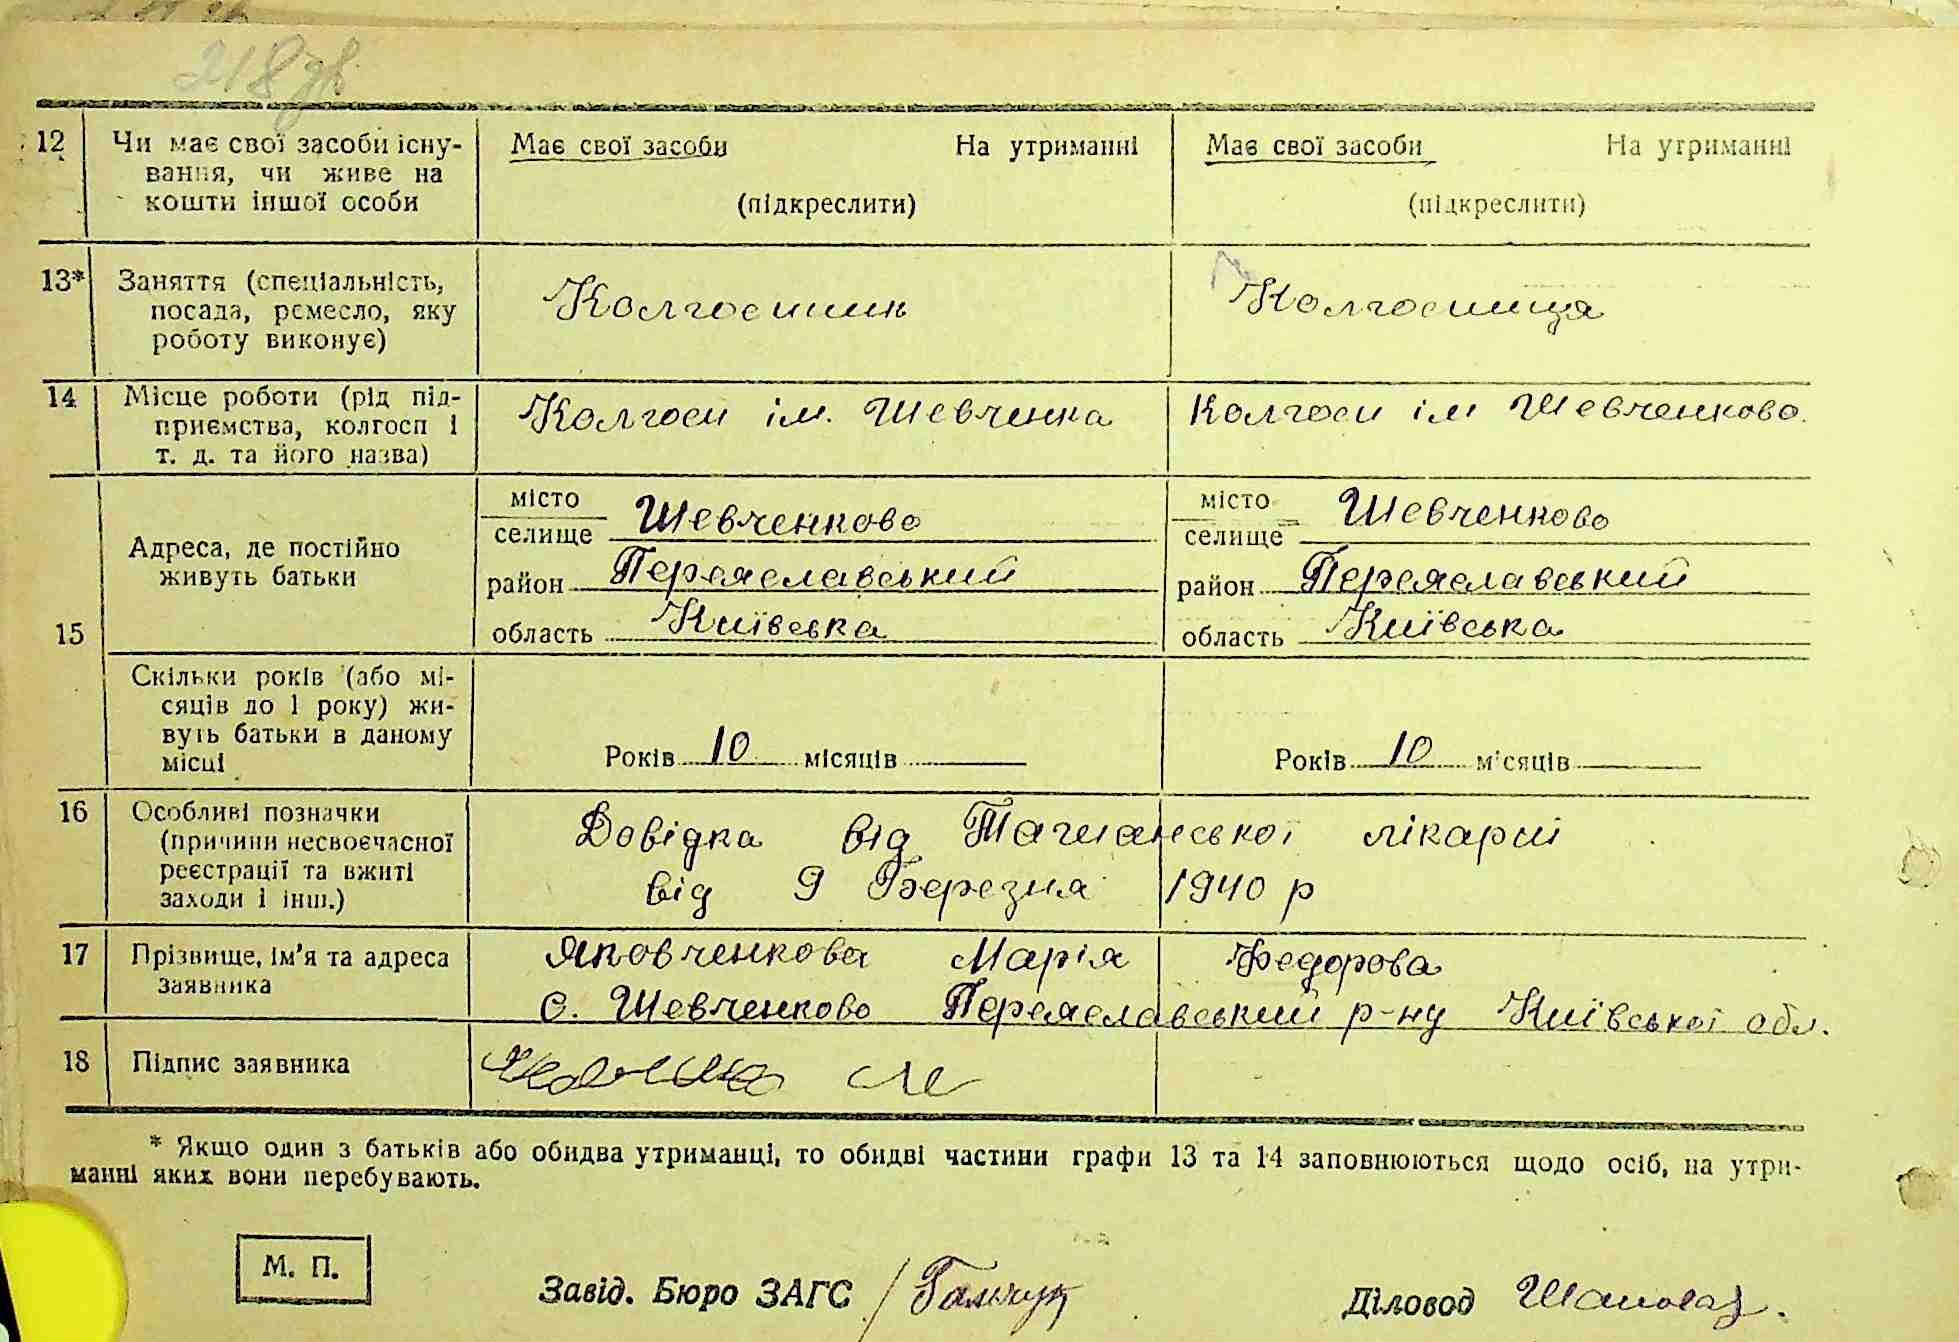 218 зв
12 Чи має свої засоби існу- Має свої засоби На утриманні Має свої засоби На утриманні
вання, чи живе на
кошти іншої особи (підкреслити) (підкреслити)
13* Заняття (спеціальність,
посада, ремесло, яку Колгоспник Колгоспниця
роботу виконує)
14 Місце роботи (рід під-
приємства, колгосп і Колгосп ім. Шевченка Колгосп ім Шевченково
т. д. та його назва)
15 Адреса, де постійно
живуть батьки
місто місто
селище Шевченково селище Шевченково
район Переяславський район Переяславський
область Київська область Київська
Скільки років (або мі-
сяців до 1 року) жи-
вуть батьки в даному
місці Років 10 місяців Років 10 місяців
16 Особливі позначки
(причини несвоєчасної Довідка від Ташанської лікарні
реєстрації та вжиті від 9 Березня 1940 р
заходи і інш.)
17 Прізвище, ім'я та адреса Яковченкова Марія Федорова
заявника с. Шевченково Переяславський р-ну Київської обл.
18 Підпис заявника
* Якщо один з батьків або обидва утриманці, то обидві частини графи 13 та 14 заповнюються щодо осіб, на утри-
манні яких вони перебувають.
М. П.
Завід. Бюро ЗАГС Діловод